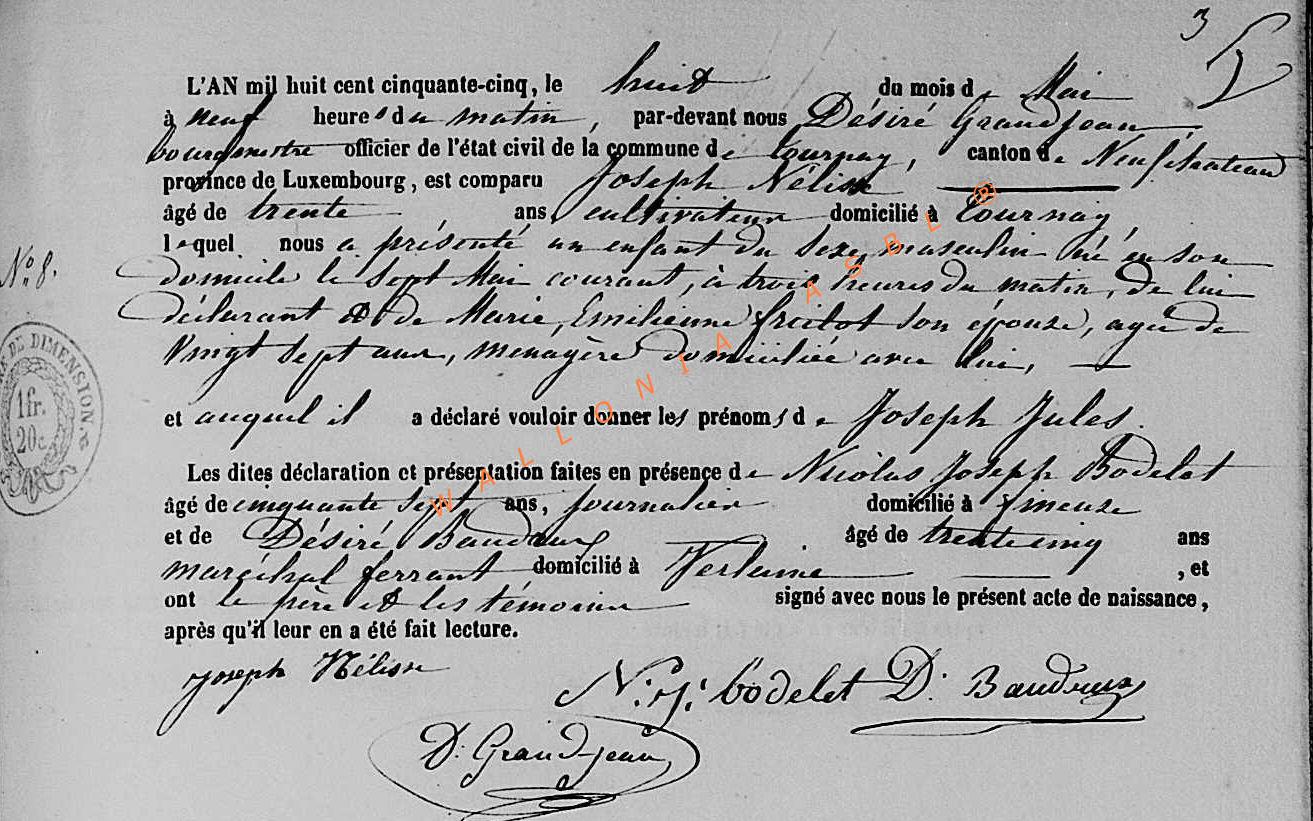 3
L'AN mil huit cent cinquante-cinq, le huit du mois de Mai
à neuf heures du matin, par-devant nous Désiré Grandjean,
bourgmestre officier de l'état civil de la commune de Tournay, canton de Neufchateau
province de Luxembourg, est comparu Joseph Nélisse
âgé de trente ans, cultivateur domicilié à Tournay,
lequel nous a présenté un enfant du sexe masculin né en son
No 8.
domicile le sept Mai courant, à trois heures du matin, de lui
déclarant et de Marie, Emilienne son épouse, agée de
Vingt sept ans, menagère domiciliée avec lui,
et auquel il a déclaré vouloir donner les prénoms de Joseph Jules.
Les dites déclaration et présentation faites en présence de Nicolas Joseph Bodelet
âgé de cinquante sept ans, journalier domicilié à
et de Désiré Baudrux âgé de trente cinq ans
maréchal ferrant domicilié à Verlaine, et
ont le père et les témoins signé avec nous le présent acte de naissance,
après qu'il leur en a été fait lecture.
Joseph Nélisse
N. j. bodelet D. Baudrux
D. Grand-jean
DE DIMENSION
1 fr.
20 c.
WALLONIA ASBL ®